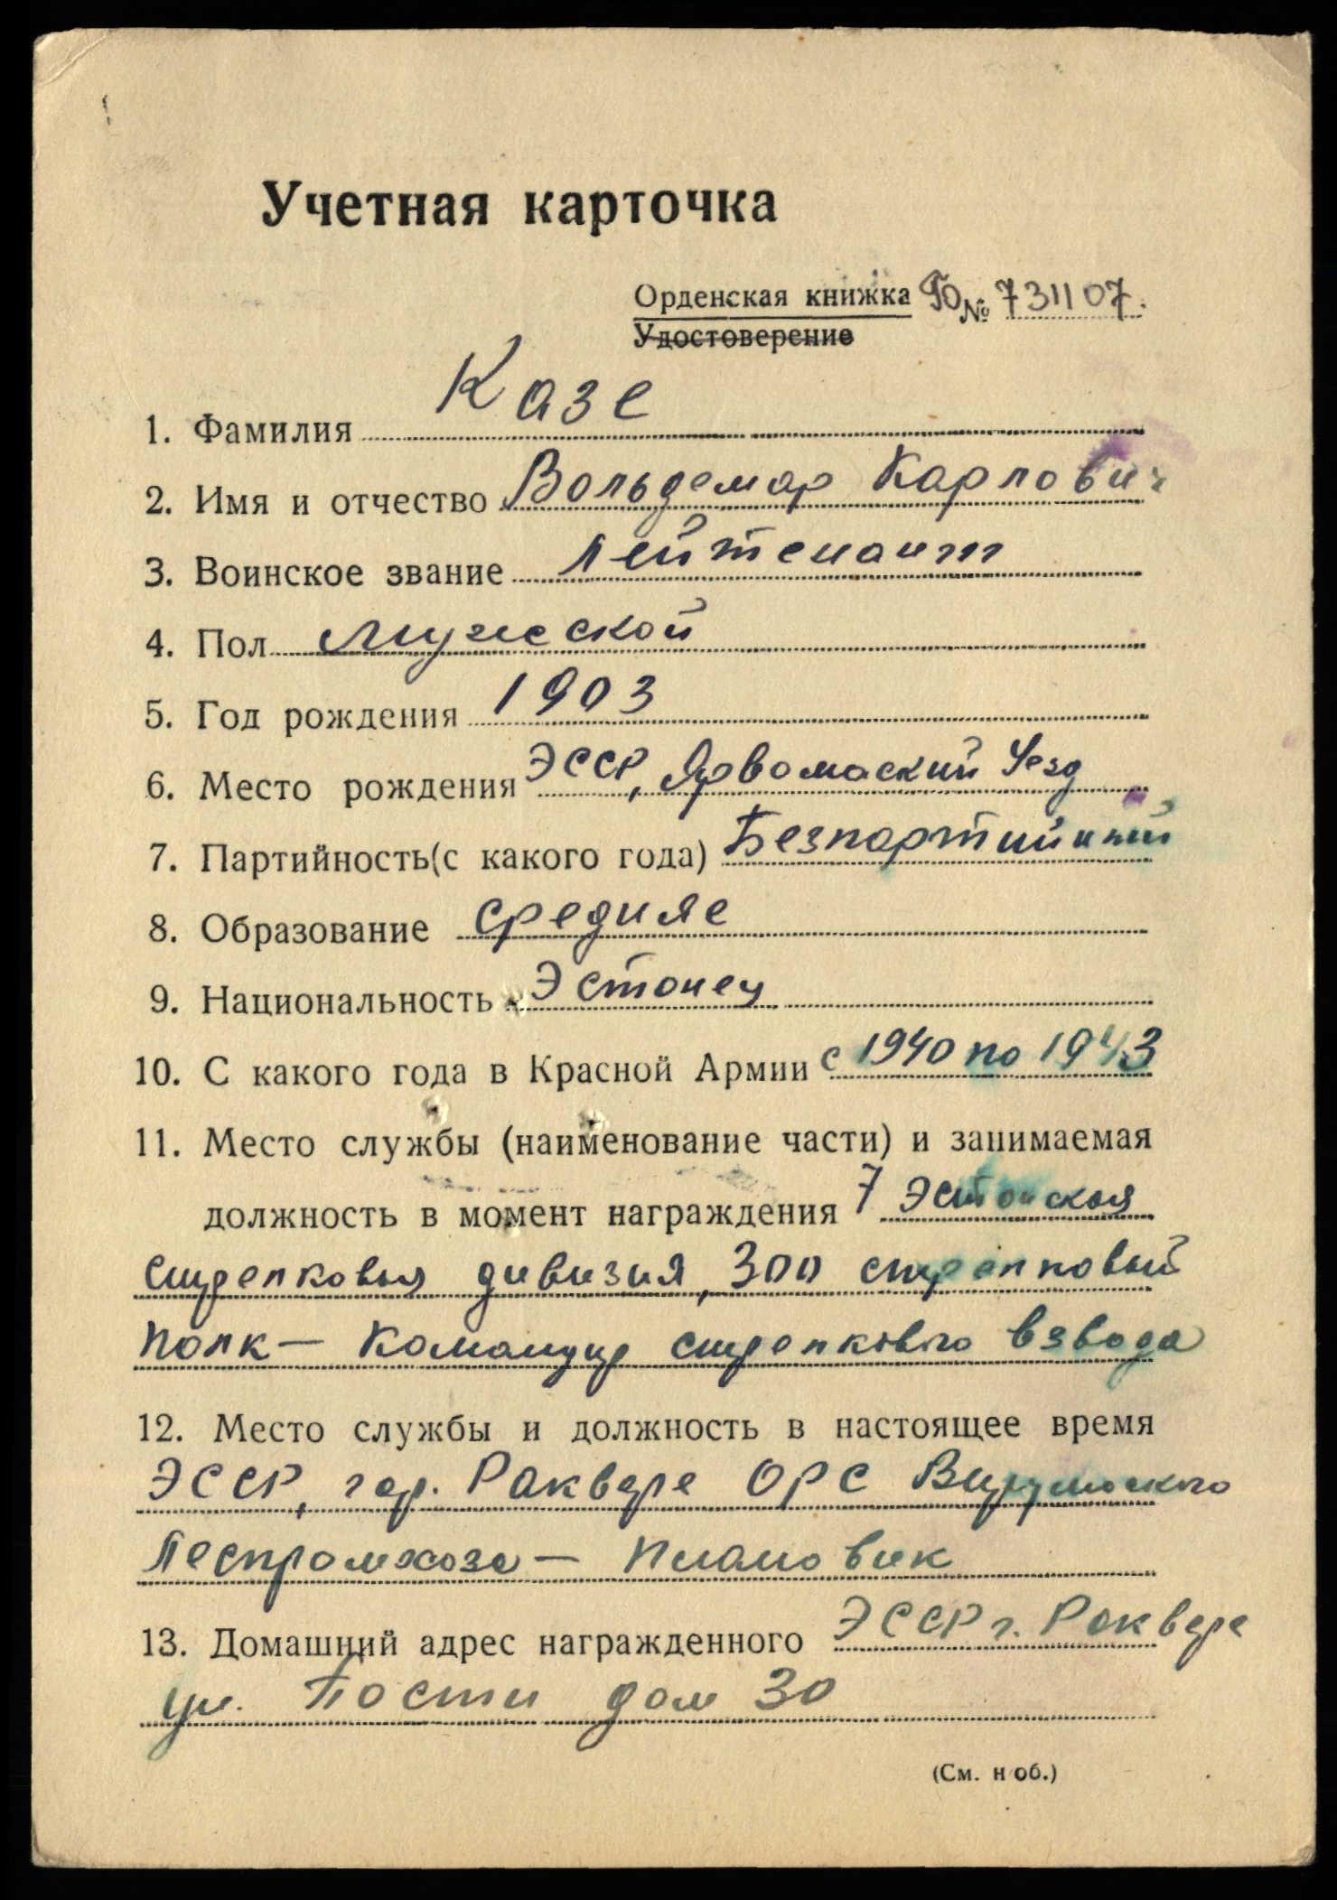 Учетная карточка
Орденская книжка № 731107.
Удостоверение
1. Фамилия Казе
2. Имя и отчество Вольдемар Карлович
3. Воинское звание Лейтенант
4. Пол мужской
5. Год рождения 1903
6. Место рождения ЭССР, Ярвамаский Уезд
7. Партийность(с какого года) Безпартийный
8. Образование средняе
9. Национальность Эстонец
10. С какого года в Красной Армии с 1940 по 1943
11. Место службы (наименование части) и занимаемая
должность в момент награждения 7 Эстонская
стрелковая дивизия, 300 стрелковый
полк — Командир стрелкового взвода
12. Место службы и должность в настоящее время
ЭССР, гор. Раквере ОРС Вирумаского
Леспромхоза — Плановик
13. Домашний адрес награжденного ЭССР г. Раквере
ул. Пости дом 30
(См. н об.)